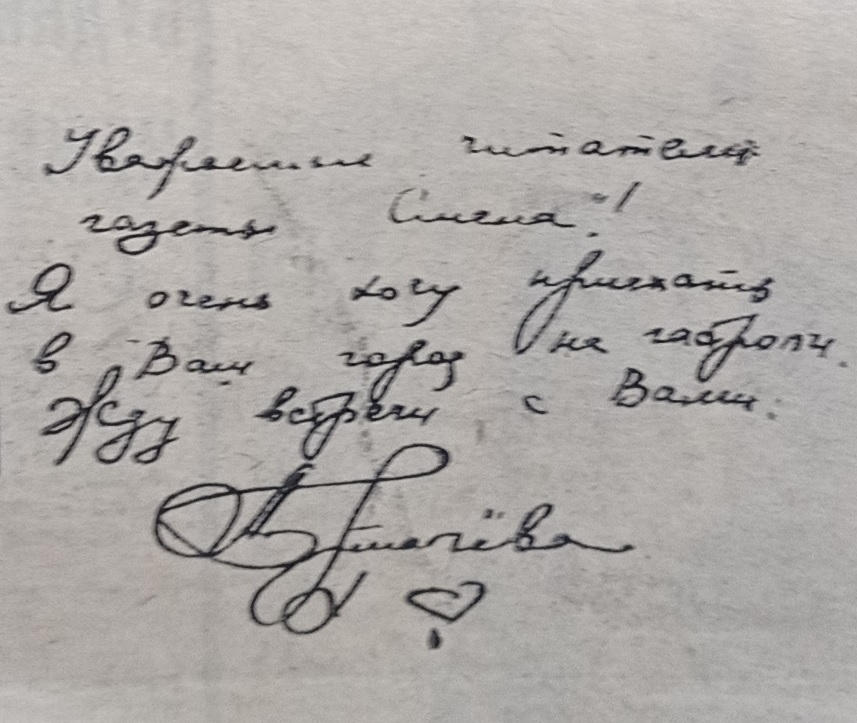 Уважаемые читатели
газеты "Смена"!
Я очень хочу приехать
в Ваш город на гастроли.
Жду встречи с Вами.